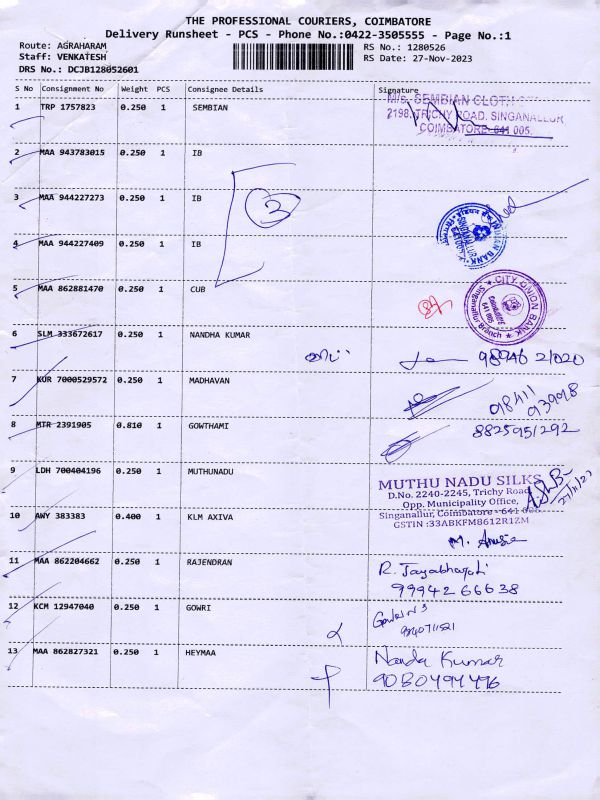 THE PROFESSIONAL COURIERS, COIMBATORE
Delivery Runsheet - PCS - Phone No.:0422-3505555 - Page No.:1
Route: AGRAHARAM RS No.: 1280526
Staff: VENKATESH RS Date: 27-Nov-2023
DRS No.: DCJB128052601
S No Consignment No Weight PCS Consignee Details Signature
1 TRP 1757823 0.250 1 SEMBIAN
M/s. SEMBIAN CLOTH
2198, TRICHY ROAD, SINGANALLUR
COIMBATORE- 641 005.
2 MAA 943783015 0.250 1 IB
3 MAA 944227273 0.250 1 IB
3
4 MAA 944227409 0.250 1 IB
INDIAN BANK
5 MAA 862881470 0.250 1 CUB
CITY UNION BANK
Singanallur Branch
Coimbatore
641 005
6 SLM 333672617 0.250 1 NANDHA KUMAR
98946 21020
7 KUR 7000529572 0.250 1 MADHAVAN
98411
039098
8 MTR 2391905 0.810 1 GOWTHAMI 8825951292
9 LDH 700404196 0.250 1 MUTHUNADU
MUTHU NADU SILKS
D.No. 2240-2245, Trichy Road
Opp. Municipality Office,
Singanallur, Coimbatore - 641 005.
GSTIN :33ABKFM8612R1ZM
27/11/23
10 AWY 383383 0.400 1 KLM AXIVA
11 MAA 862204662 0.250 1 RAJENDRAN
99942 66638
12 KCM 12947040 0.250 1 GOWRI
13 MAA 862827321 0.250 1 HEYMAA Nanda Kumar
9080494496